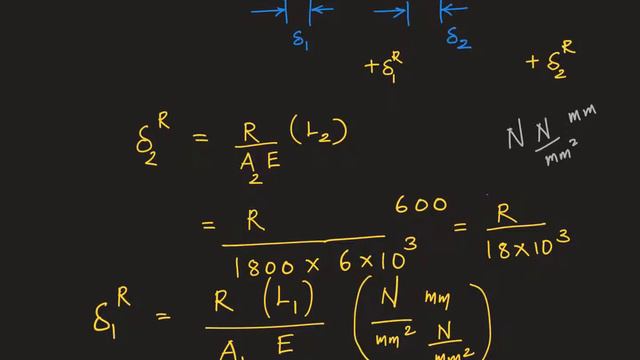 δ₁ δ₂
+δ₁ᴿ +δ₂ᴿ
δ₂ᴿ = R/(A₂E) (L₂) N N/mm² mm
= R/(1800 × 6×10³) 600 = R/(18×10³)
δ₁ᴿ = R (L₁)/(A₁ E) (N/mm² mm/(N/mm²))